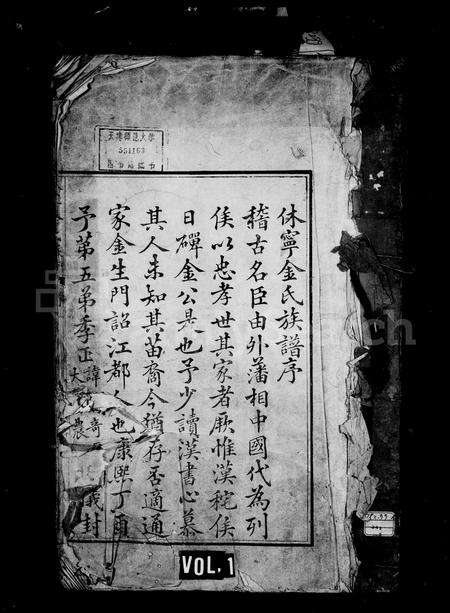 休寧金氏族譜序
稽古名臣由外藩相中國代為列
侯以忠孝世其家者厥惟漢秺侯
日磾金公是也予少讀漢書心慕
其人未知其苗裔今猶存否適通
家金生門詔江都人也康熙丁酉
予第五弟季正諱
大
農奇
封
天津師范大學
551163
圖書館藏書
VOL.1